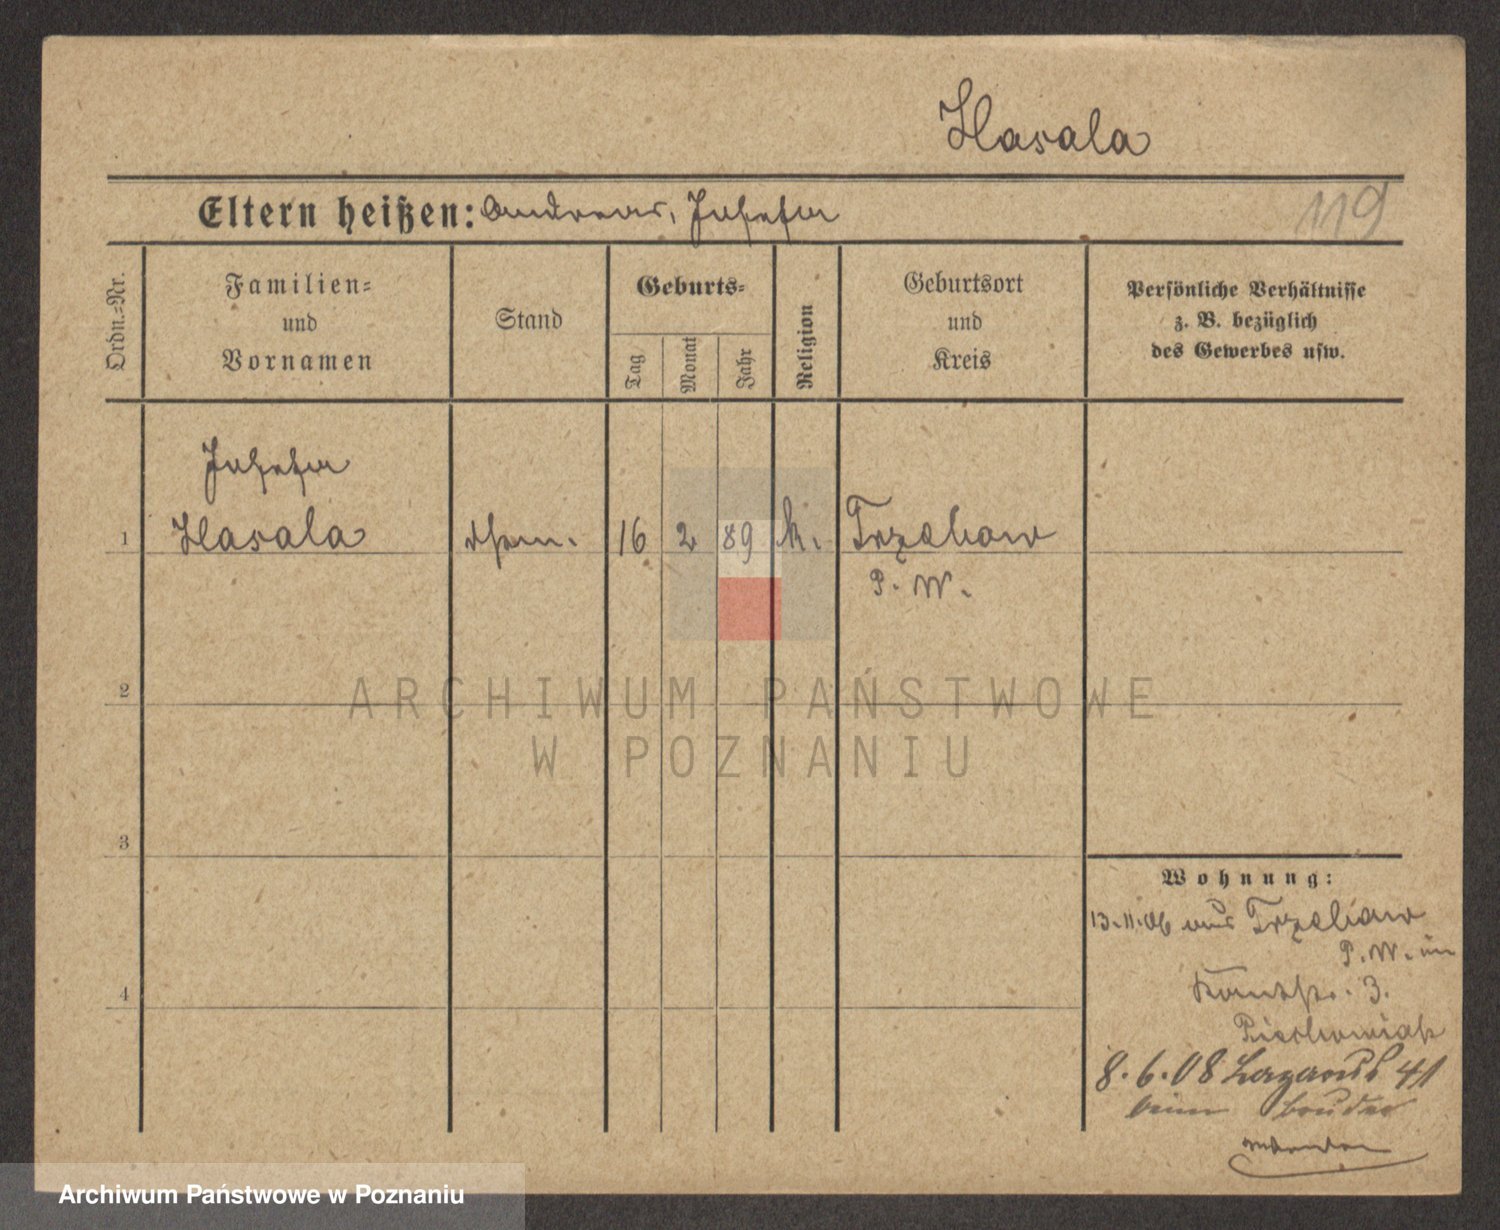 Hasala
Eltern heißen: Andreas, Josefa
119
Ordn.-Nr.
Familien-
und
Vornamen
Stand
Geburts-
Tag
Monat
Jahr
Religion
Geburtsort
und
Kreis
Persönliche Verhältnisse
z. B. bezüglich
des Gewerbes usw.
Josefa
1 Hasala 16 2 89 k. Trzebaw
P. W.
2
ARCHIWUM PAŃSTWOWE
W POZNANIU
3
4
Wohnung:
13.11.06 aus Trzebaw
P. W. in
3.
8.6.08 41
beim Bruder
Archiwum Państwowe w Poznaniu